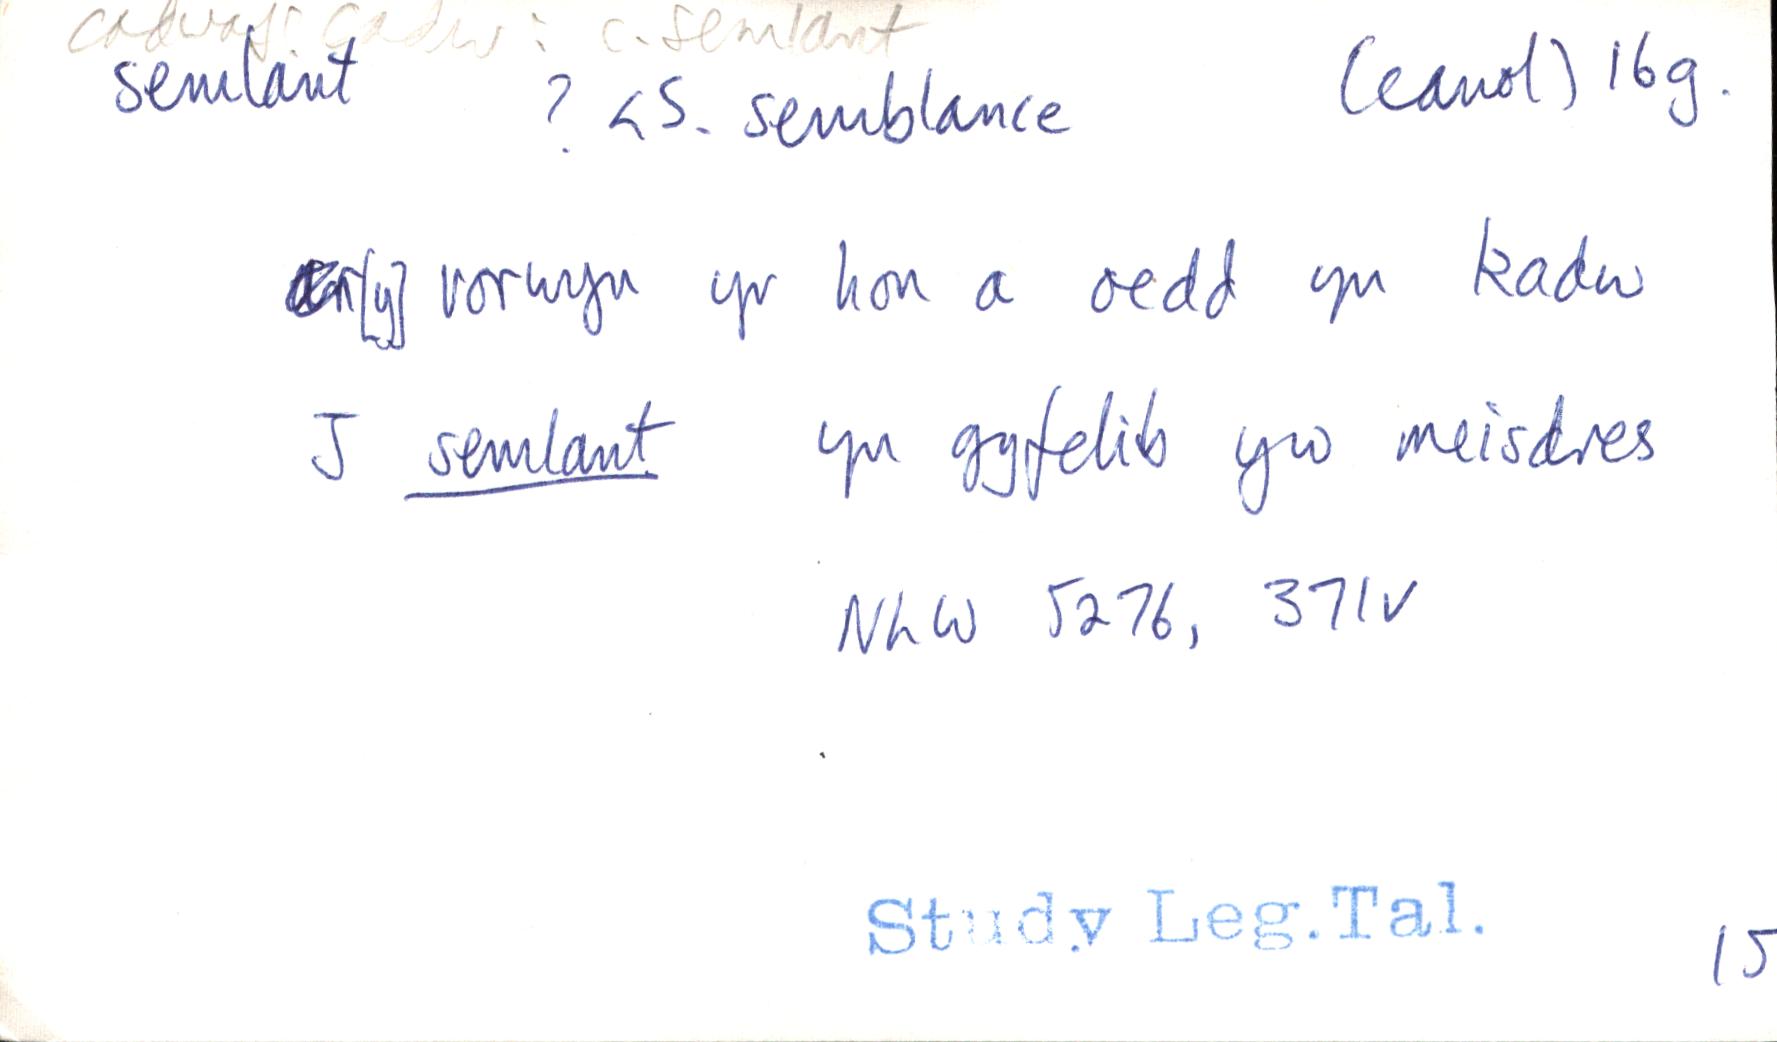 cadwaf: cadw: c. semlant
semlant ? < S. semblance (canol) 16g.
[y] vorwyn yr hon a oedd yn kadw
J semlant yn gyfelib yw meisdres
NLW 5276, 371v
Study Leg. Tal.
15